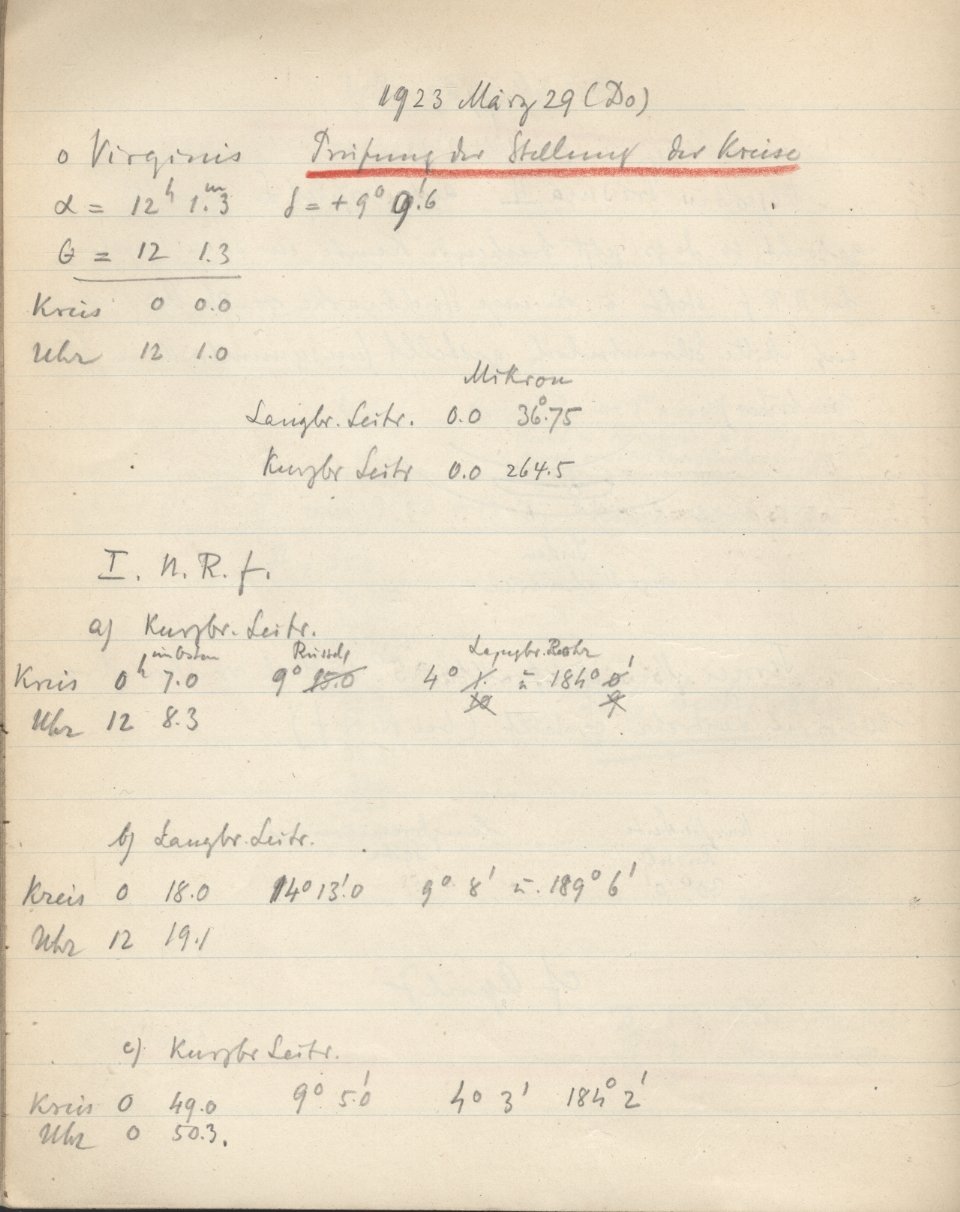 1923 März 29 (Do)
o Virginis Prüfung der Stellung der Kreise
α = 12ʰ 1.ᵐ3 δ = +9° 9.'6
θ = 12 1.3
Kreis 0 0.0
Uhr 12 1.0
Mikron
Langbr. Leitr. 0.0 36.°75
Kurzbr Leitr 0.0 264.5
I. N. R. f.
a) Kurzbr. Leitr.
Langbr. Rohr
Kreis 0ʰ 7.0 9° 15.0 4° 1. u. 184° 0'
Uhr 12 8.3
b) Langbr. Leitr.
Kreis 0 18.0 14° 13.'0 9° 8' u. 189° 6'
Uhr 12 19.1
c) Kurzbr Leitr.
Kreis 0 49.0 9° 5.'0 4° 3' 184° 2'
Uhr 0 50.3.